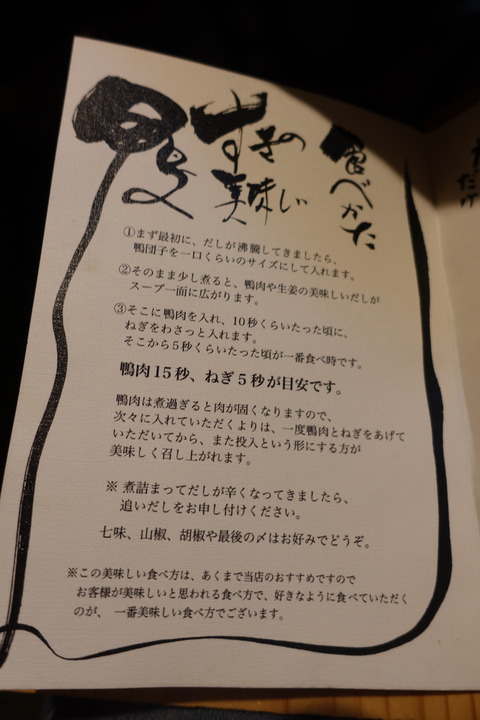 鴨
すきの
美味しい
食べかた
①まず最初に、だしが沸騰してきましたら、
鴨団子を一口くらいのサイズにして入れます。
②そのまま少し煮ると、鴨肉や生姜の美味しいだしが
スープ一面に広がります。
③そこに鴨肉を入れ、10秒くらいたった頃に、
ねぎをわさっと入れます。
そこから5秒くらいたった頃が一番食べ時です。
鴨肉15秒、ねぎ5秒が目安です。
鴨肉は煮過ぎると肉が固くなりますので、
次々に入れていただくよりは、一度鴨肉とねぎをあげて
いただいてから、また投入という形にする方が
美味しく召し上がれます。
※ 煮詰まってだしが辛くなってきましたら、
追いだしをお申し付けください。
七味、山椒、胡椒や最後の〆はお好みでどうぞ。
※この美味しい食べ方は、あくまで当店のおすすめですので
お客様が美味しいと思われる食べ方で、好きなように食べていただく
のが、一番美味しい食べ方でございます。
だけ